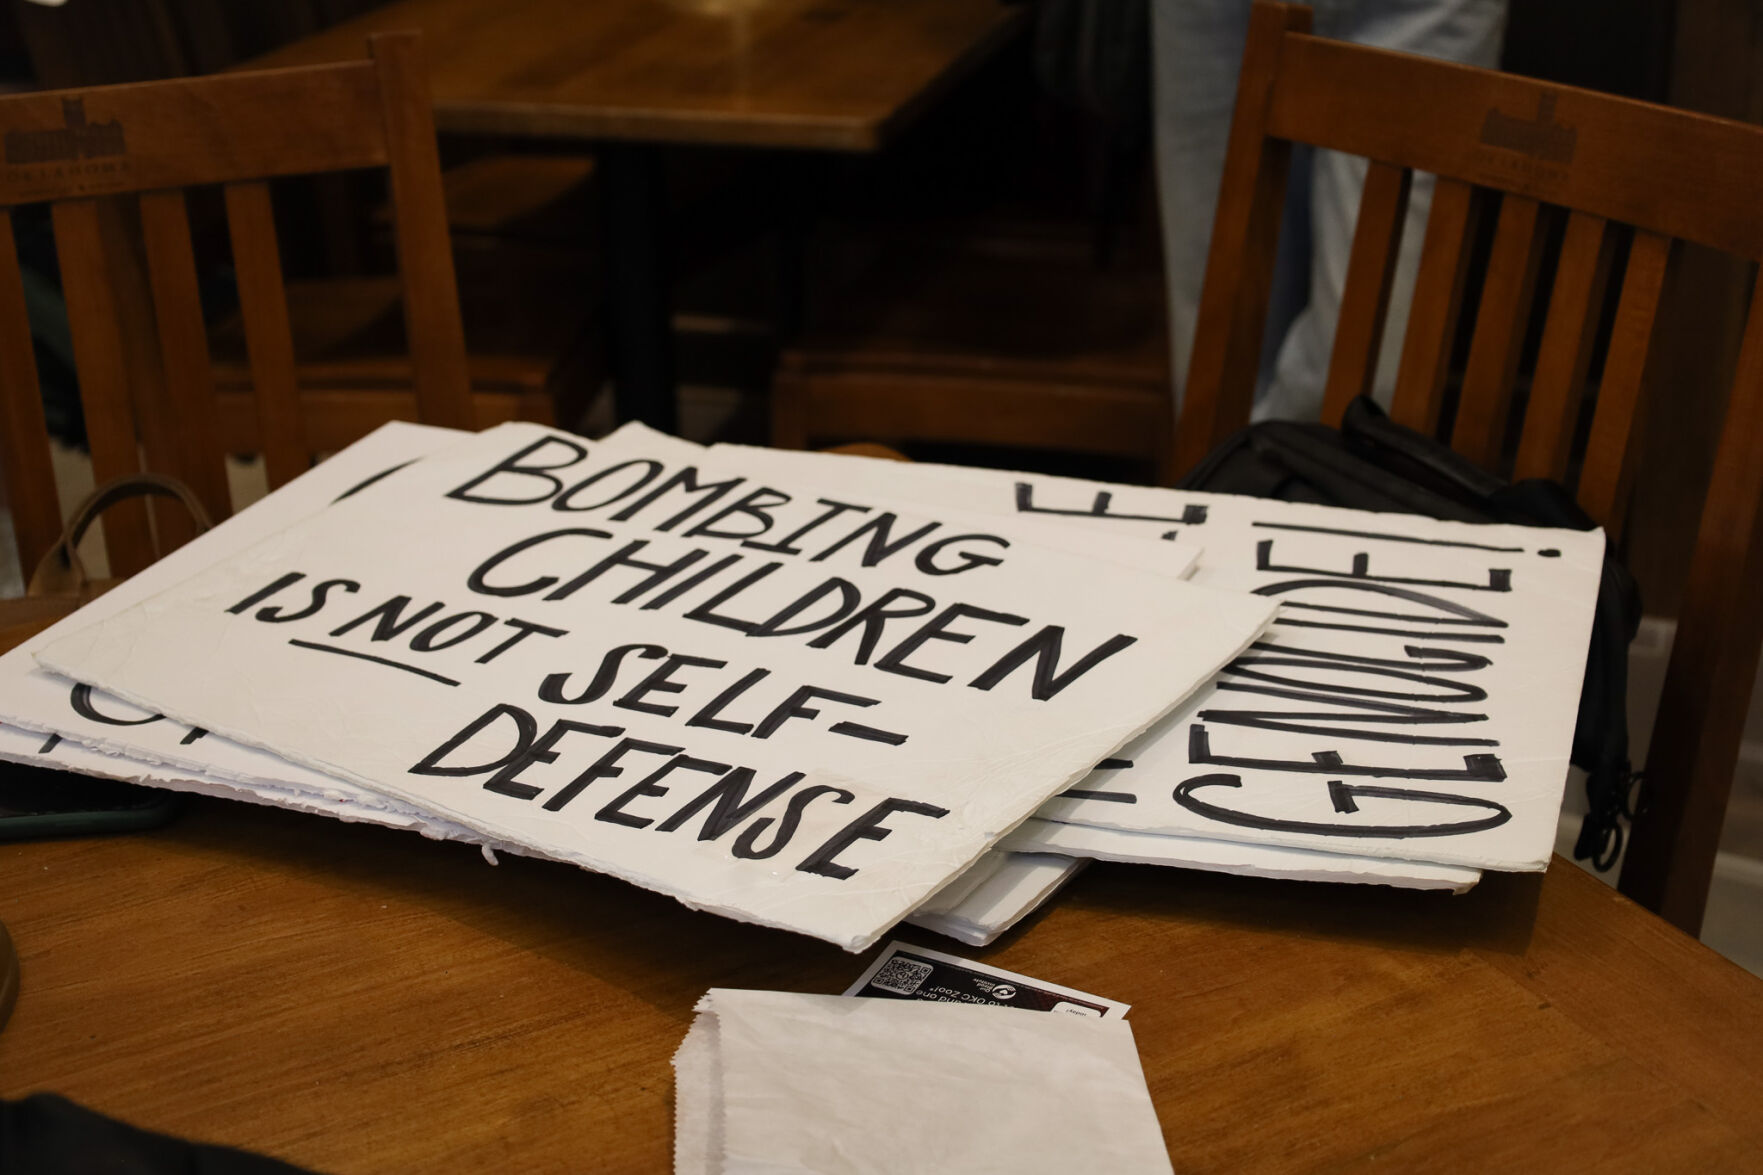 BOMBING
CHILDREN
IS NOT SELF-
DEFENSE
GENOCIDE!!
OKLAHOMA
OKLAHOMA
and one
to OKC Zoo!*
today!